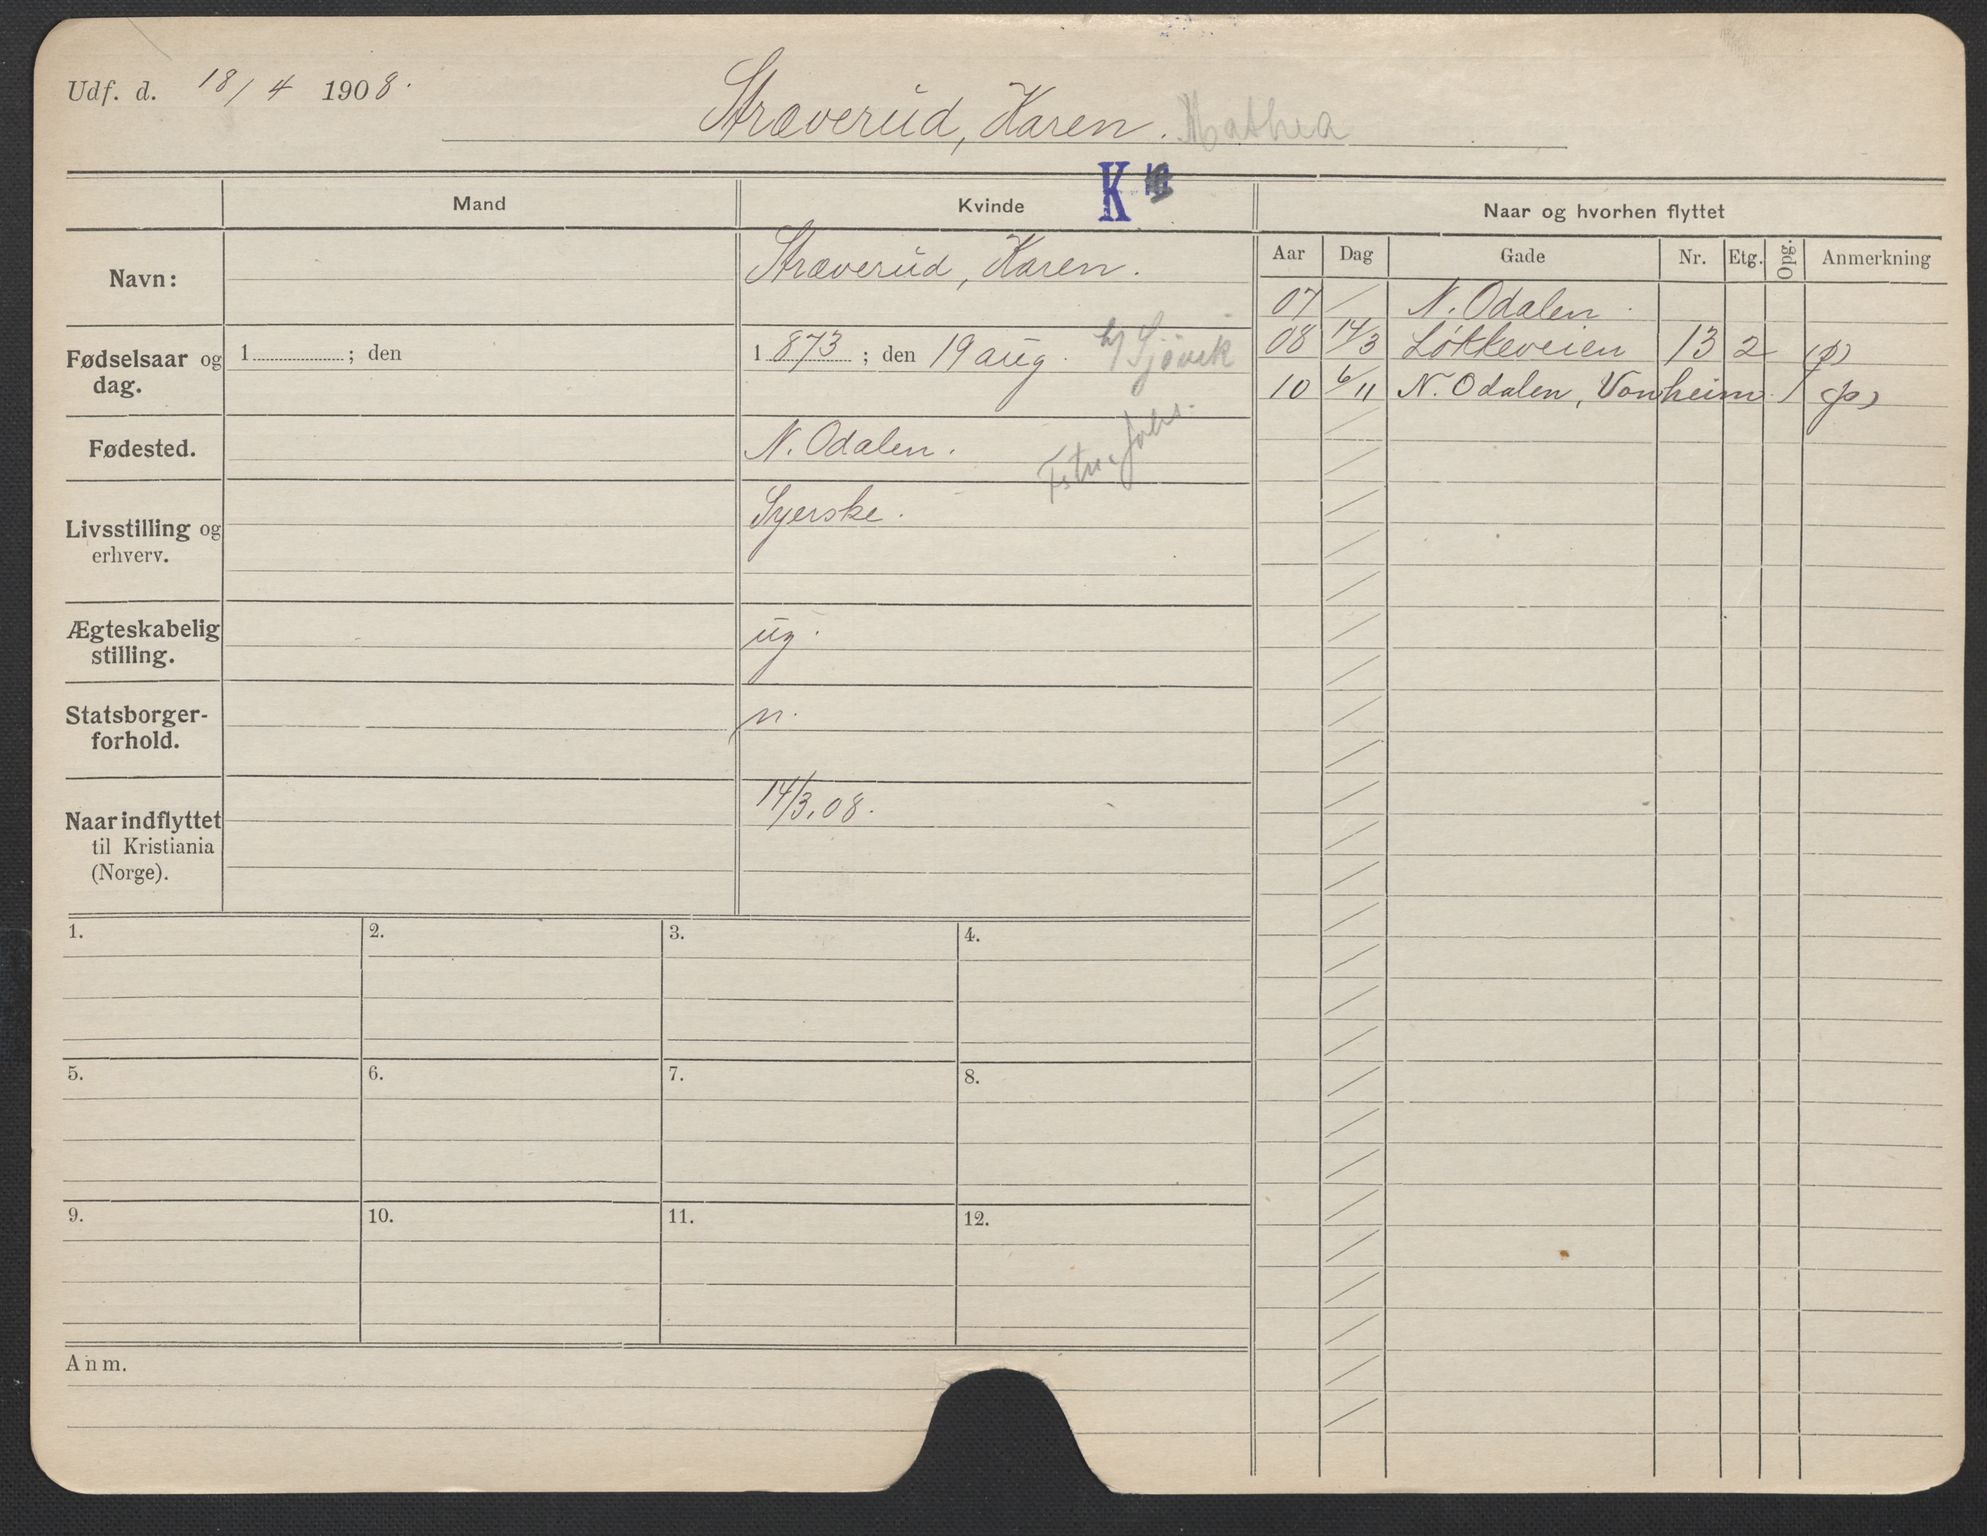 Udf. d. 18/4 1908.
Stræverud, Karen. Mathea
K
Mand
Kvinde
Naar og hvorhen flyttet
Aar Dag Gade Nr. Etg. Opg. Anmerkning
Navn:
Stræverud, Karen.
07 N. Odalen.
08 14/3 Løkkeveien 13 2 (p)
10 6/11 N. Odalen, Vonheim. (p)
Fødselsaar og dag.
1 ; den
1873 ; den 19 aug.
Fødested.
N. Odalen.
Livsstilling og erhverv.
Syerske.
Ægteskabelig stilling.
ug.
Statsborger-
forhold.
n.
Naar indflyttet
til Kristiania
(Norge).
14/3.08.
1. 2. 3. 4.
5. 6. 7. 8.
9. 10. 11. 12.
Anm.